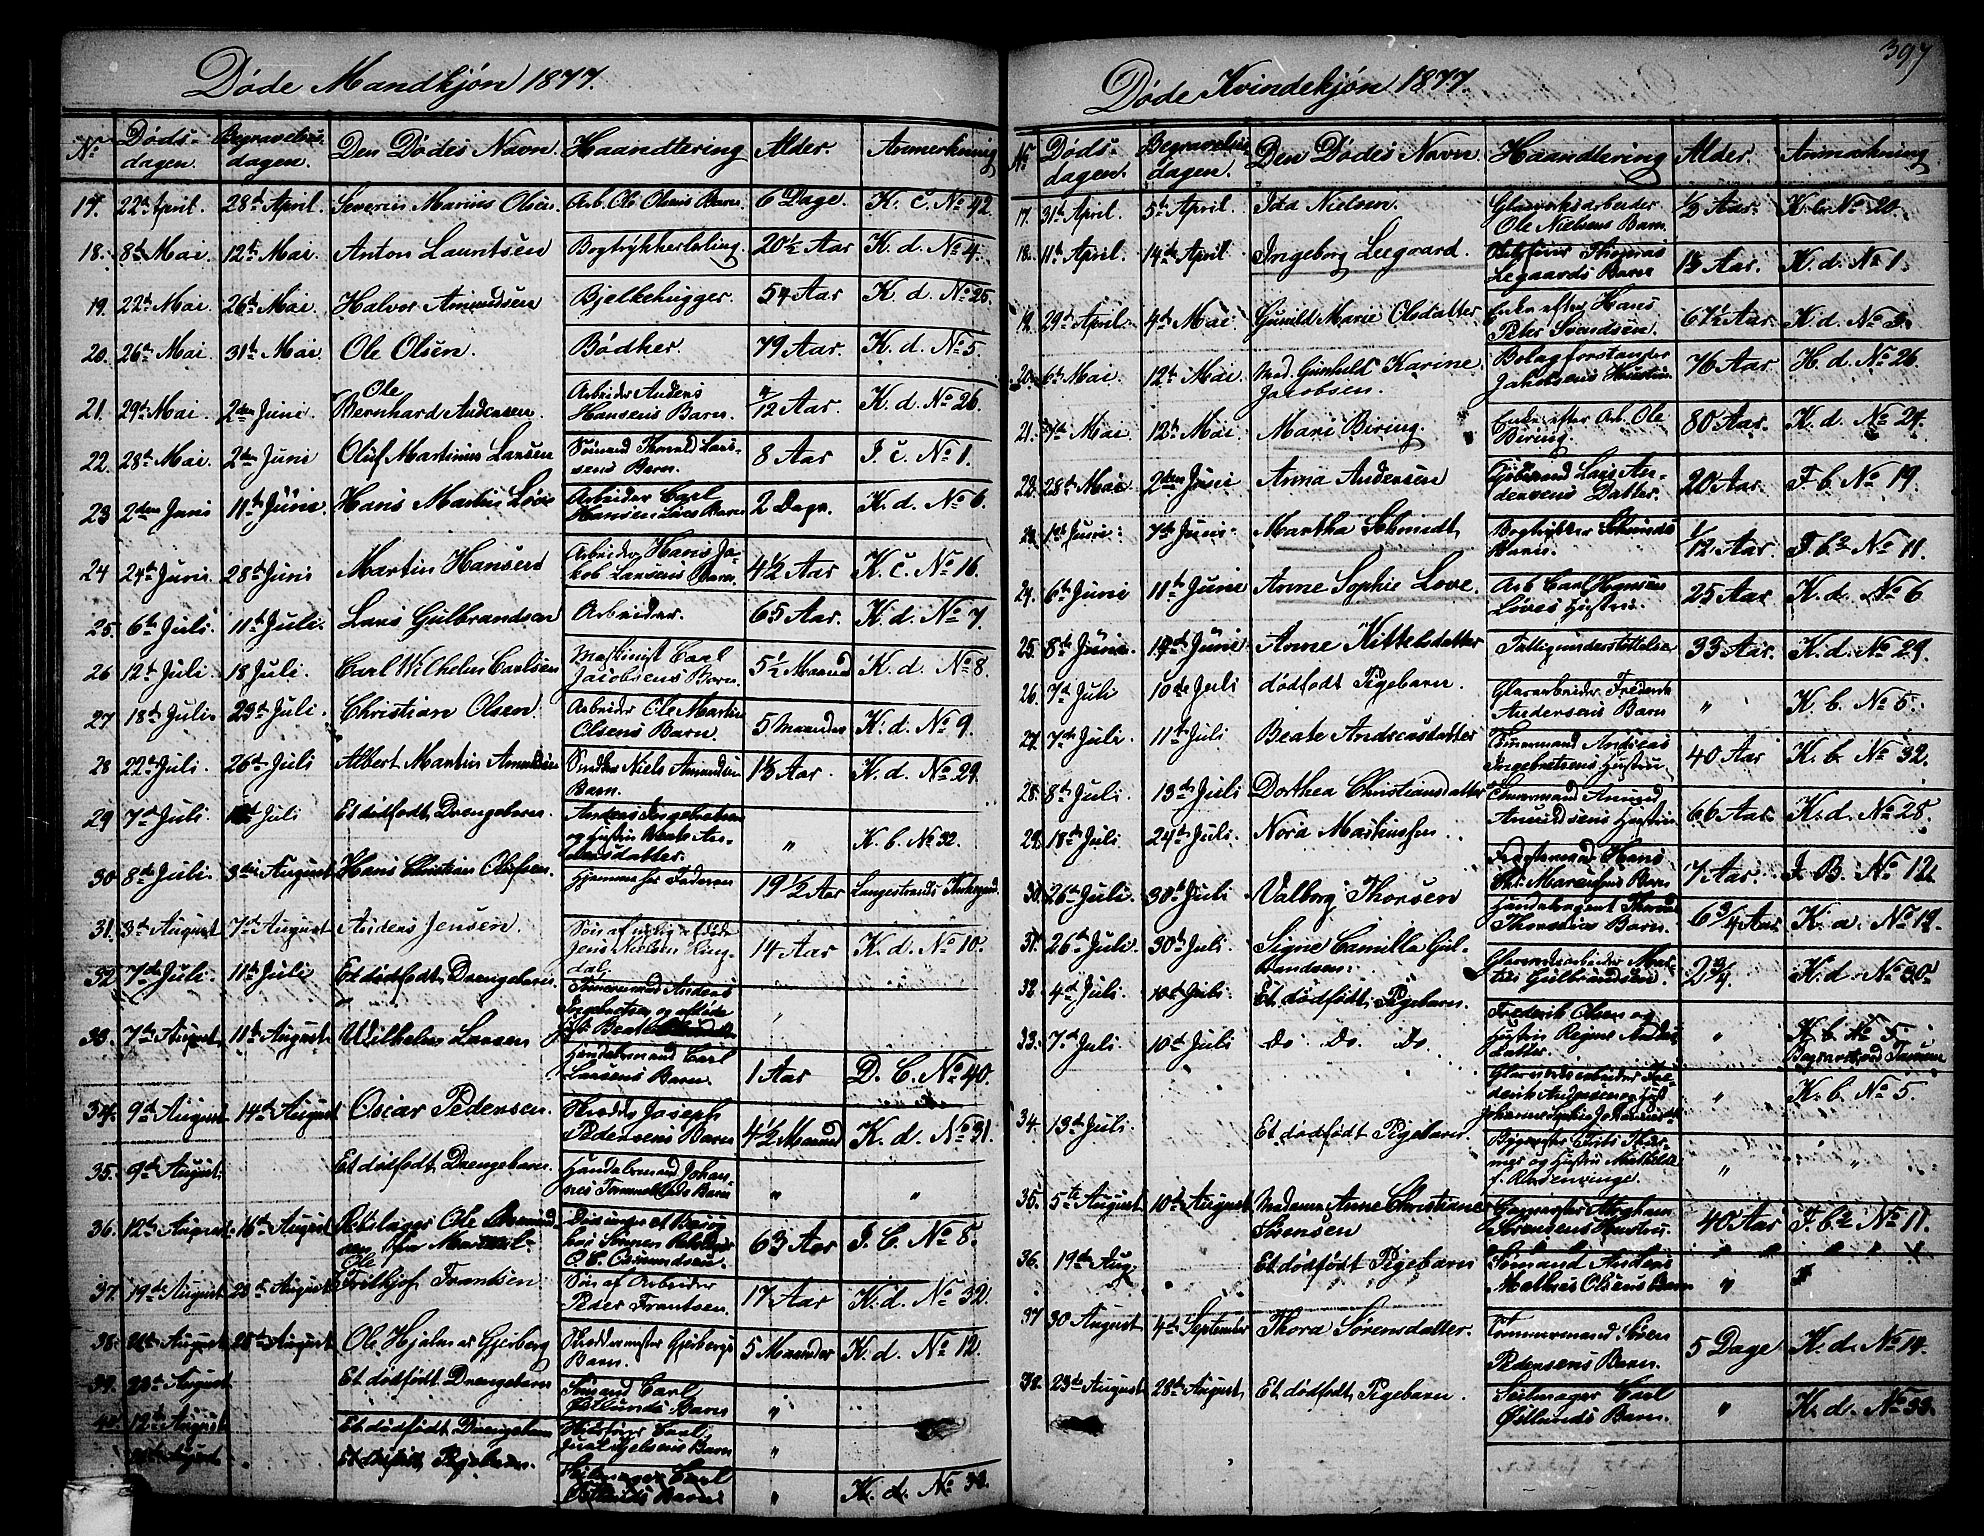 Døde Mandkjøn 1877.
No Døds-dagen. Begravelses-dagen. Den Dødes Navn. Haandtering Alder. Anmerkning
17. 22de April. 28de April. Severin Marius Olsen. Arb. Ole Olsens Barn. 6 Dage. K. c. No 42.
18. 8de Mai 12te Mai. Anton Lauritsen Bogtrykkerlærling. 20½ Aar K. d. No 4.
19. 22de Mai. 26de Mai. Halvor Amundsen Bjelkehugger. 54 Aar K. d. No 25.
20. 26de Mai 31te Mai. Ole Olsen. Bødker. 79 Aar. K. d. No 5.
21. 29de Mai. 2den Juni Ole Bernhard Andersen. Arbeider Anders Hansens Barn. /12 Aar. K. d. No 26.
22. 28de Mai. 2den Juni Oluf Martinus Larsen Sømand Thorvald Larsens Barn. 8 Aar I. c. No 1.
23 2den Juni 11te Juni. Hans Martin Løve Arbeider Carl Hansen Løves Barn 2 Dage. K. d. No 6.
24 24de Juni. 28de Juni Martin Hansen Arbeider Hans Jakob Larsens Barn. 4½ Aar K. c. No 16.
25. 6te Juli. 11te Juli. Lars Gulbrandsen Arbeider. 65 Aar. K. d. No 7.
26 12te Juli 18 Juli. Carl Wilhelm Carlsen Maskinist Carl Jacobsens Barn. 5½ Maaned K. d. No 8.
27 18de Juli. 23de Juli. Christian Olsen. Arbeider Ole Martin Olsens Barn. 5 Maaneder K. d. No 9.
28 22de Juli. 26de Juli Albert Martin Amundsen Snedker Niels Amundsen Barn. 1½ Aar. K. d. No 29.
29 7de Juli Juli Et dødfødt Drengebarn. Andreas Ingebretsen og Hustru Beate Andreasdatter. " K. b. No 32.
30 8de Juli. 3die August Hans Christian Olufsen. Hjemme hos Faderen 19½ Aar Langestrands Kirkegaard
31. 3die August 7de August Anders Jensen. Søn af Jens Nielsen Ringdal. 14 Aar K. d. No 10.
32 7de Juli. 11te Juli Et dødfødt Drengebarn. Tømmermand Anders Ingebretsen og Beate
33. 7de August 11te August. Wilhelm Larsen Handelsmand Carl Larsens Barn. 1 Aar D. C. No 40.
34. 9de August 14de August Oscar Pedersen. Skredder Joseph Pedersens Barn 4½ Maaned K. d. No 31.
35. 9de August Et dødfødt Drengebarn. Handelsmand Johannes Barn " "
36. 12te August 16de August Rebslager Ole 63 Aar I. C. No 8.
37. 19de August 23de August Ole Frithjof Frantsen Søn af Arbeider Peder Frantsen. 17 Aar K. d. No 32.
38. 21de August 25de August Ole Hjalmar Gjerberg Skreddermester Gjerbergs Barn. 5 Maaneder K. d. No 12.
39. 23de August Et dødfødt Drengebarn Sømand Carl Østlunds Barn "
40. 12te August Et dødfødt Drengebarn Skibsfører Carl Barn "
August Et dødfødt Pigebarn. Seilmager Carl Østlunds Barn "

397
Døde Kvindekjøn 1877.
No Døds-dagen. Begravelses-dagen. Den Dødes Navn Haandtering Alder. Anmærkning
17. 31te April. 5te April. Ida Nielsen. Glasverksarbeider Ole Nielsens Barn. ½ Aar. K. b. No 20.
18. 11te April. 14de April Ingeborg Leegaard. Skibsfører Thomas Legaards Barn 1½ Aar. K. d. No 1.
19. 29de April. 4de Mai Gunild Marie Olsdatter Enke efter Hans Peter Svendsen. 67½ Aar. K. d. No 3.
20. 6te Mai. 12te Mai Mad. Gunhild Karine Jacobsen. Bolagforstander Jakobsens Hustru 76 Aar H. d. No 26.
21. 7de Mai 12te Mai. Mari Biring. Enke efter Arb. Ole Biring. 80 Aar. K. d. No 24.
22. 28de Mai 2den Juni Anna Andersen Lars Andersens Datter. 20 Aar. F. b. No 19
23. 1ste Juni. 7de Juni. Martha Schmidt. Bogtrykker Schmidts Barn. 1/12 Aar F. b2 No 11.
24. 6te Juni 11te Juni Anne Sophie Love. Arb. Carl Hansen Løves Hustru 25 Aar K. d. No 6
25. 8de Juni. 14de Juni Anne Kittelsdatter Fattigunderstøttelse 33 Aar. K. d. No 29.
26. 7de Juli 10de Juli dødfødt Pigebarn. Glasarbeider Frederik Andersens Barn " K. b. No 5.
27. 7de Juli. 11te Juli Beate Andreasdatter Tømmermand Andreas Ingebretsens Hustru 40 Aar K. b. No 32.
28. 8de Juli. 13de Juli Dorthea Christiansdatter Tømmermand Amund Amundsens Hustru 66 Aar K. d. No 28.
29. 18de Juli 24de Juli. Nora Markussen. Fragtemand Hans Markussens Barn 7 Aar. I. B. No 12.
30. 26de Juli 30te Juli Valborg Thorsen Handelsagent Thorsens Barn. 6¾ Aar K. a. No 19.
31. 26de Juli. 30te Juli. Signe Camilla Gulbrandsen. Glasverksarbeider Gulbrandsen. 2¾ K. d. No 30.
32. 4de Juli. 10de Juli. Et dødfødt Pigebarn. Frederik Olsen og Hustru Regine datter " K. b. No 5
33. 7de Juli 10de Juli Do Do. Do. Glasverksarbeider Frederik Andersen og Johanne Sophie " K. b. No 5.
34. 13de Juli Et dødfødt Pigebarn. og Hustru Mathilde " "
35. 5te August 10de August Madame Anne Christiane Sørensen Abraham Sørensens Hustru. 40 Aar F. b2 No 11.
36. 19de Aug. Et dødfødt Pigebarn Sømand Anders Mathias Olsens Barn "
37 30 August 4de September Thora Sørensdatter. Tømmermand Søren Pedersens Barn. 5 Dage K. d. No 14.
38. 23de August 28de August. Et dødfødt Pigebarn. Seilmager Carl Østlunds Barn. " K. d. No 33.